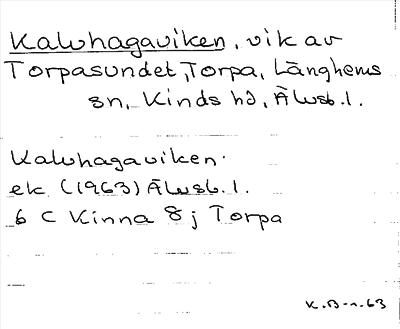 Kalvhagaviken, vik av
Torpasundet, Torpa, Länghems
sn, Kinds hd, Älvsb. l.
Kalvhagaviken.
ek (1963) Älvsb. l.
6 C Kinna 8 j Torpa
K.B-n. 63